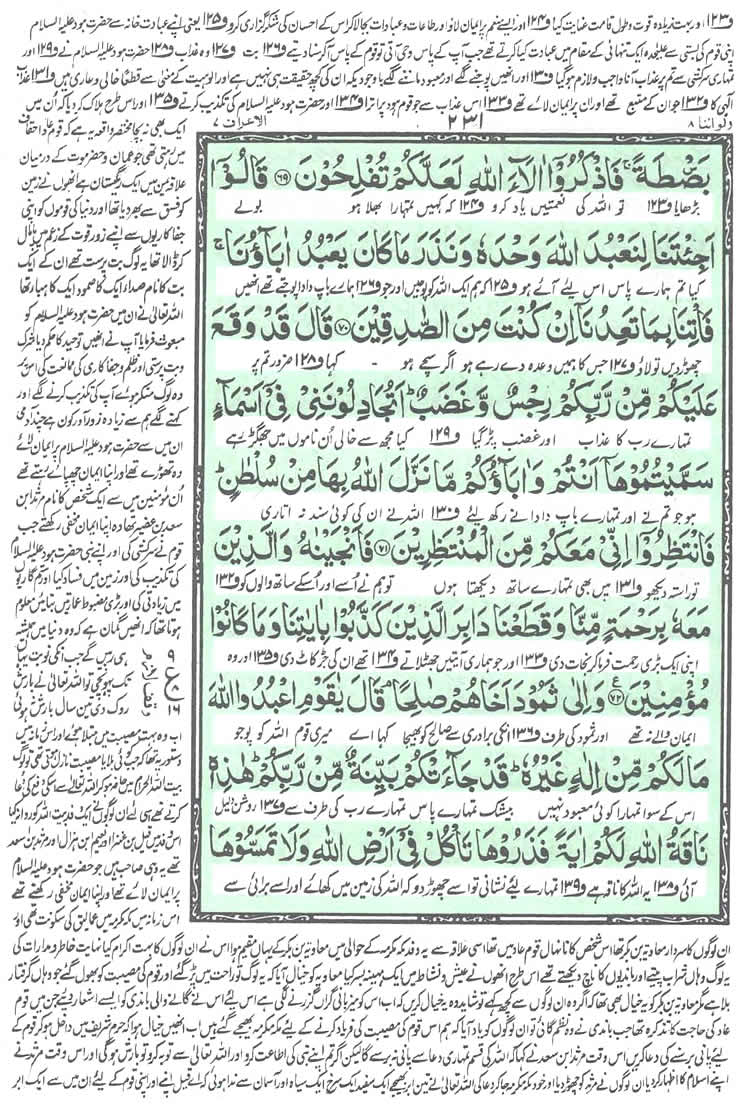 و۱۲۳ اور بہت زیادہ قوت و طول قامت عنایت کیا و۱۲۴ اور ایسے منعم پر ایمان لاؤ اور طاعات و عبادات بجا لا کر اس کے احسان کی شکر گزاری کرو و۱۲۵ یعنی اپنے عبادت خانہ سے حضرت ہود علیہ السلام
اپنی قوم کی بستی سے علیحدہ ایک تنہائی کے مقام میں عبادت کیا کرتے تھے جب آپ کے پاس وحی آتی تو قوم کے پاس آکر سنا دیتے و۱۲۶ بت و۱۲۷ وہ عذاب و۱۲۸ حضرت ہود علیہ السلام نے و۱۲۹ اور
تمہاری سرکشی سے تم پر عذاب آنا واجب و لازم ہو گیا و۱۳۰ اور انھیں پوجنے لگے اور معبود ماننے لگے باوجودیکہ ان کی کچھ حقیقت ہی نہیں ہے اور الوہیت کے معنی سے قطعًا خالی و عاری ہیں و۱۳۱ عذاب
الٰہی کا و۱۳۲ جو ان کے متبع تھے اور ان پر ایمان لائے تھے و۱۳۳ اس عذاب سے جو قوم ہود پر اترا و۱۳۴ اور حضرت ہود علیہ السلام کی تکذیب کرتے و۱۳۵ اور اس طرح ہلاک کر دیا کہ ان میں
ولواننا ۸
۲۳۱
الاعراف ۷
بَصْۜطَةً ۚ فَاذْكُرُوْۤا اٰلَآءَ اللّٰهِ لَعَلَّكُمْ تُفْلِحُوْنَ ﴿۶۹﴾ قَالُوْۤا
بڑھایا و۱۲۳ تو اللہ کی نعمتیں یاد کرو و۱۲۴ کہ کہیں تمہارا بھلا ہو بولے
اَجِئْتَنَا لِنَعْبُدَ اللّٰهَ وَحْدَهٗ وَنَذَرَ مَا كَانَ يَعْبُدُ اٰبَآؤُنَا ۚ
کیا تم ہمارے پاس اس لیے آئے ہو و۱۲۵ کہ ہم ایک اللہ کو پوجیں اور جو و۱۲۶ ہمارے باپ دادا پوجتے تھے انھیں
فَاْتِنَا بِمَا تَعِدُنَاۤ اِنْ كُنْتَ مِنَ الصّٰدِقِيْنَ ﴿۷۰﴾ قَالَ قَدْ وَقَعَ
چھوڑ دیں تو لاؤ و۱۲۷ جس کا ہمیں وعدہ دے رہے ہو اگر سچے ہو - کہا و۱۲۸ ضرور تم پر
عَلَيْكُمْ مِّنْ رَّبِّكُمْ رِجْسٌ وَّغَضَبٌ ؕ اَتُجَادِلُوْنَنِيْ فِيْۤ اَسْمَآءٍ
تمہارے رب کا عذاب اور غضب پڑ گیا و۱۲۹ کیا مجھ سے خالی ان ناموں میں جھگڑ رہے
سَمَّيْتُمُوْهَاۤ اَنْتُمْ وَاٰبَآؤُكُمْ مَّا نَزَّلَ اللّٰهُ بِهَا مِنْ سُلْطٰنٍ ؕ
ہو جو تم نے اور تمہارے باپ دادا نے رکھ لیے و۱۳۰ اللہ نے ان کی کوئی سند نہ اتاری
فَانْتَظِرُوْۤا اِنِّيْ مَعَكُمْ مِّنَ الْمُنْتَظِرِيْنَ ﴿۷۱﴾ فَاَنْجَيْنٰهُ وَالَّذِيْنَ
تو راستہ دیکھو و۱۳۱ میں بھی تمہارے ساتھ دیکھتا ہوں تو ہم نے اُسے اور اُسکے ساتھ والوں کو و۱۳۲
مَعَهٗ بِرَحْمَةٍ مِّنَّا وَقَطَعْنَا دَابِرَ الَّذِيْنَ كَذَّبُوْا بِاٰيٰتِنَا وَمَا كَانُوْا
اپنی ایک بڑی رحمت فرما کر نجات دی و۱۳۳ اور جو ہماری آیتیں جھٹلاتے و۱۳۴ تھے ان کی جڑ کاٹ دی و۱۳۵ اور وہ
مُؤْمِنِيْنَ ﴿۷۲﴾ وَاِلٰى ثَمُوْدَ اَخَاهُمْ صٰلِحًا ۘ قَالَ يٰقَوْمِ اعْبُدُوا اللّٰهَ
ایمان والے نہ تھے اور ثمود کی طرف و۱۳۶ انکی برادری سے صالح کو بھیجا کہا اے میری قوم اللہ کو پوجو
مَا لَكُمْ مِّنْ اِلٰهٍ غَيْرُهٗ ؕ قَدْ جَآءَتْكُمْ بَيِّنَةٌ مِّنْ رَّبِّكُمْ ؕ هٰذِهٖ
اس کے سوا تمہارا کوئی معبود نہیں بیشک تمہارے پاس تمہارے رب کی طرف سے و۱۳۷ روشن دلیل
نَاقَةُ اللّٰهِ لَكُمْ اٰيَةً فَذَرُوْهَا تَاْكُلْ فِيْۤ اَرْضِ اللّٰهِ وَلَا تَمَسُّوْهَا
آئی و۱۳۸ یہ اللہ کا ناقہ ہے و۱۳۹ تمہارے لیے نشانی تو اسے چھوڑ دو کہ اللہ کی زمین میں کھائے اور اسے برائی سے
ایک بھی نہ بچا مختصر واقعہ یہ ہے کہ قوم عاد احقاف
میں رہتی تھی جو عمان و حضرموت کے درمیان
علاقہ یمن میں ایک ریگستان ہے انھوں نے زمین
کو فسق سے بھر دیا تھا اور دنیا کی قوموں کو اپنی
جفا کاریوں سے اپنے زور قوت کے زعم میں پامال
کر ڈالا تھا یہ لوگ بت پرست تھے ان کے ایک
بت کا نام صداء ایک کا صمود ایک کا ہباء تھا
اللہ تعالیٰ نے ان میں حضرت ہود علیہ السلام کو
مبعوث فرمایا آپ نے انھیں توحید کا حکم دیا شرک
و بت پرستی اور ظلم و جفا کاری کی ممانعت کی اس پر
وہ لوگ منکر ہوئے آپ کی تکذیب کرنے لگے اور
کہنے لگے ہم سے زیادہ زور آور کون ہے چند آدمی
ان میں سے حضرت ہود علیہ السلام پر ایمان لائے
وہ تھوڑے تھے اور اپنا ایمان چھپائے رہتے تھے
اُن مؤمنین میں سے ایک شخص کا نام مرثد ابن
سعد بن عفیر تھا وہ اپنا ایمان مخفی رکھتے تھے جب
قوم نے سرکشی کی اور اپنے نبی حضرت ہود علیہ السلام
کی تکذیب کی اور زمین میں فساد کیا اور ستم گاریوں
میں زیادتی کی اور بڑی مضبوط عمارتیں بنائیں معلوم
ہوتا تھا کہ انھیں گمان ہے کہ وہ دنیا میں ہمیشہ
ہی رہیں گے جب انکی نوبت یہاں
تک پہونچی تو اللہ تعالیٰ نے بارش
روک دی تین سال بارش نہ ہوئی
۹
ع
۱۶
اب وہ بہت مصیبت میں مبتلا ہوئے اور اس زمانہ میں
دستور یہ تھا کہ جب کوئی بلا یا مصیبت نازل ہوتی تھی تو لوگ
بیت اللہ الحرام میں حاضر ہو کر اللہ تعالیٰ سے اسکی دفع کی دعا
کرتے تھے اسی لیے ان لوگوں نے ایک وفد بیت اللہ کو روانہ کیا
اس وفد میں قیل بن عنزا اور نعیم بن ہزال اور مرثد بن سعد
تھے یہ وہی صاحب ہیں جو حضرت ہود علیہ السلام
پر ایمان لائے تھے اور اپنا ایمان مخفی رکھتے تھے
اس زمانہ میں مکہ مکرمہ میں عمالیق کی سکونت تھی اور
ان لوگوں کا سردار معاویہ بن بکر تھا اس شخص کا نانہال قوم عاد میں تھا اسی علاقہ سے یہ وفد مکہ مکرمہ کے حوالی میں معاویہ بن بکر کے یہاں مقیم ہوا اس نے ان لوگوں کا بہت اکرام کیا نہایت خاطر و مدارات کی
یہ لوگ وہاں شراب پیتے اور باندیوں کا ناچ دیکھتے تھے اس طرح انھوں نے عیش و نشاط میں ایک مہینہ بسر کیا معاویہ کو خیال آیا کہ یہ لوگ تو راحت میں پڑ گئے اور قوم کی مصیبت کو بھول گئے جو وہاں گرفتار
بلا ہے مگر معاویہ بن بکر کو یہ خیال بھی تھا کہ اگر وہ ان لوگوں سے کچھ کہے تو شاید وہ یہ خیال کریں کہ اب اس کو میزبانی گراں گزرنے لگی ہے اس لیے اس نے گانے والی باندی کو ایسے اشعار دیئے جن میں قوم
عاد کی حاجت کا تذکرہ تھا جب باندی نے وہ نظم گائی تو ان لوگوں کو یاد آیا کہ ہم اس قوم کی مصیبت کی فریاد کرنے کے لیے مکہ مکرمہ بھیجے گئے ہیں اب انھیں خیال ہوا کہ حرم شریف میں داخل ہو کر قوم کے
لیے پانی برسنے کی دعا کریں اس وقت مرثد ابن سعد نے کہا کہ اللہ کی قسم تمہاری دعا سے پانی نہ برسے گا لیکن اگر تم اپنے نبی کی اطاعت کرو اور اللہ تعالیٰ سے توبہ کرو تو بارش ہوگی اور اس وقت مرثد نے
اپنے اسلام کا اظہار کر دیا ان لوگوں نے مرثد کو چھوڑ دیا اور خود مکہ مکرمہ جا کر دعا کی اللہ تعالیٰ نے تین ابر بھیجے ایک سفید ایک سرخ ایک سیاہ اور آسمان سے ندا ہوئی کہ اے قیل اپنے اور اپنی قوم کے لیے ان میں سے ایک ابر